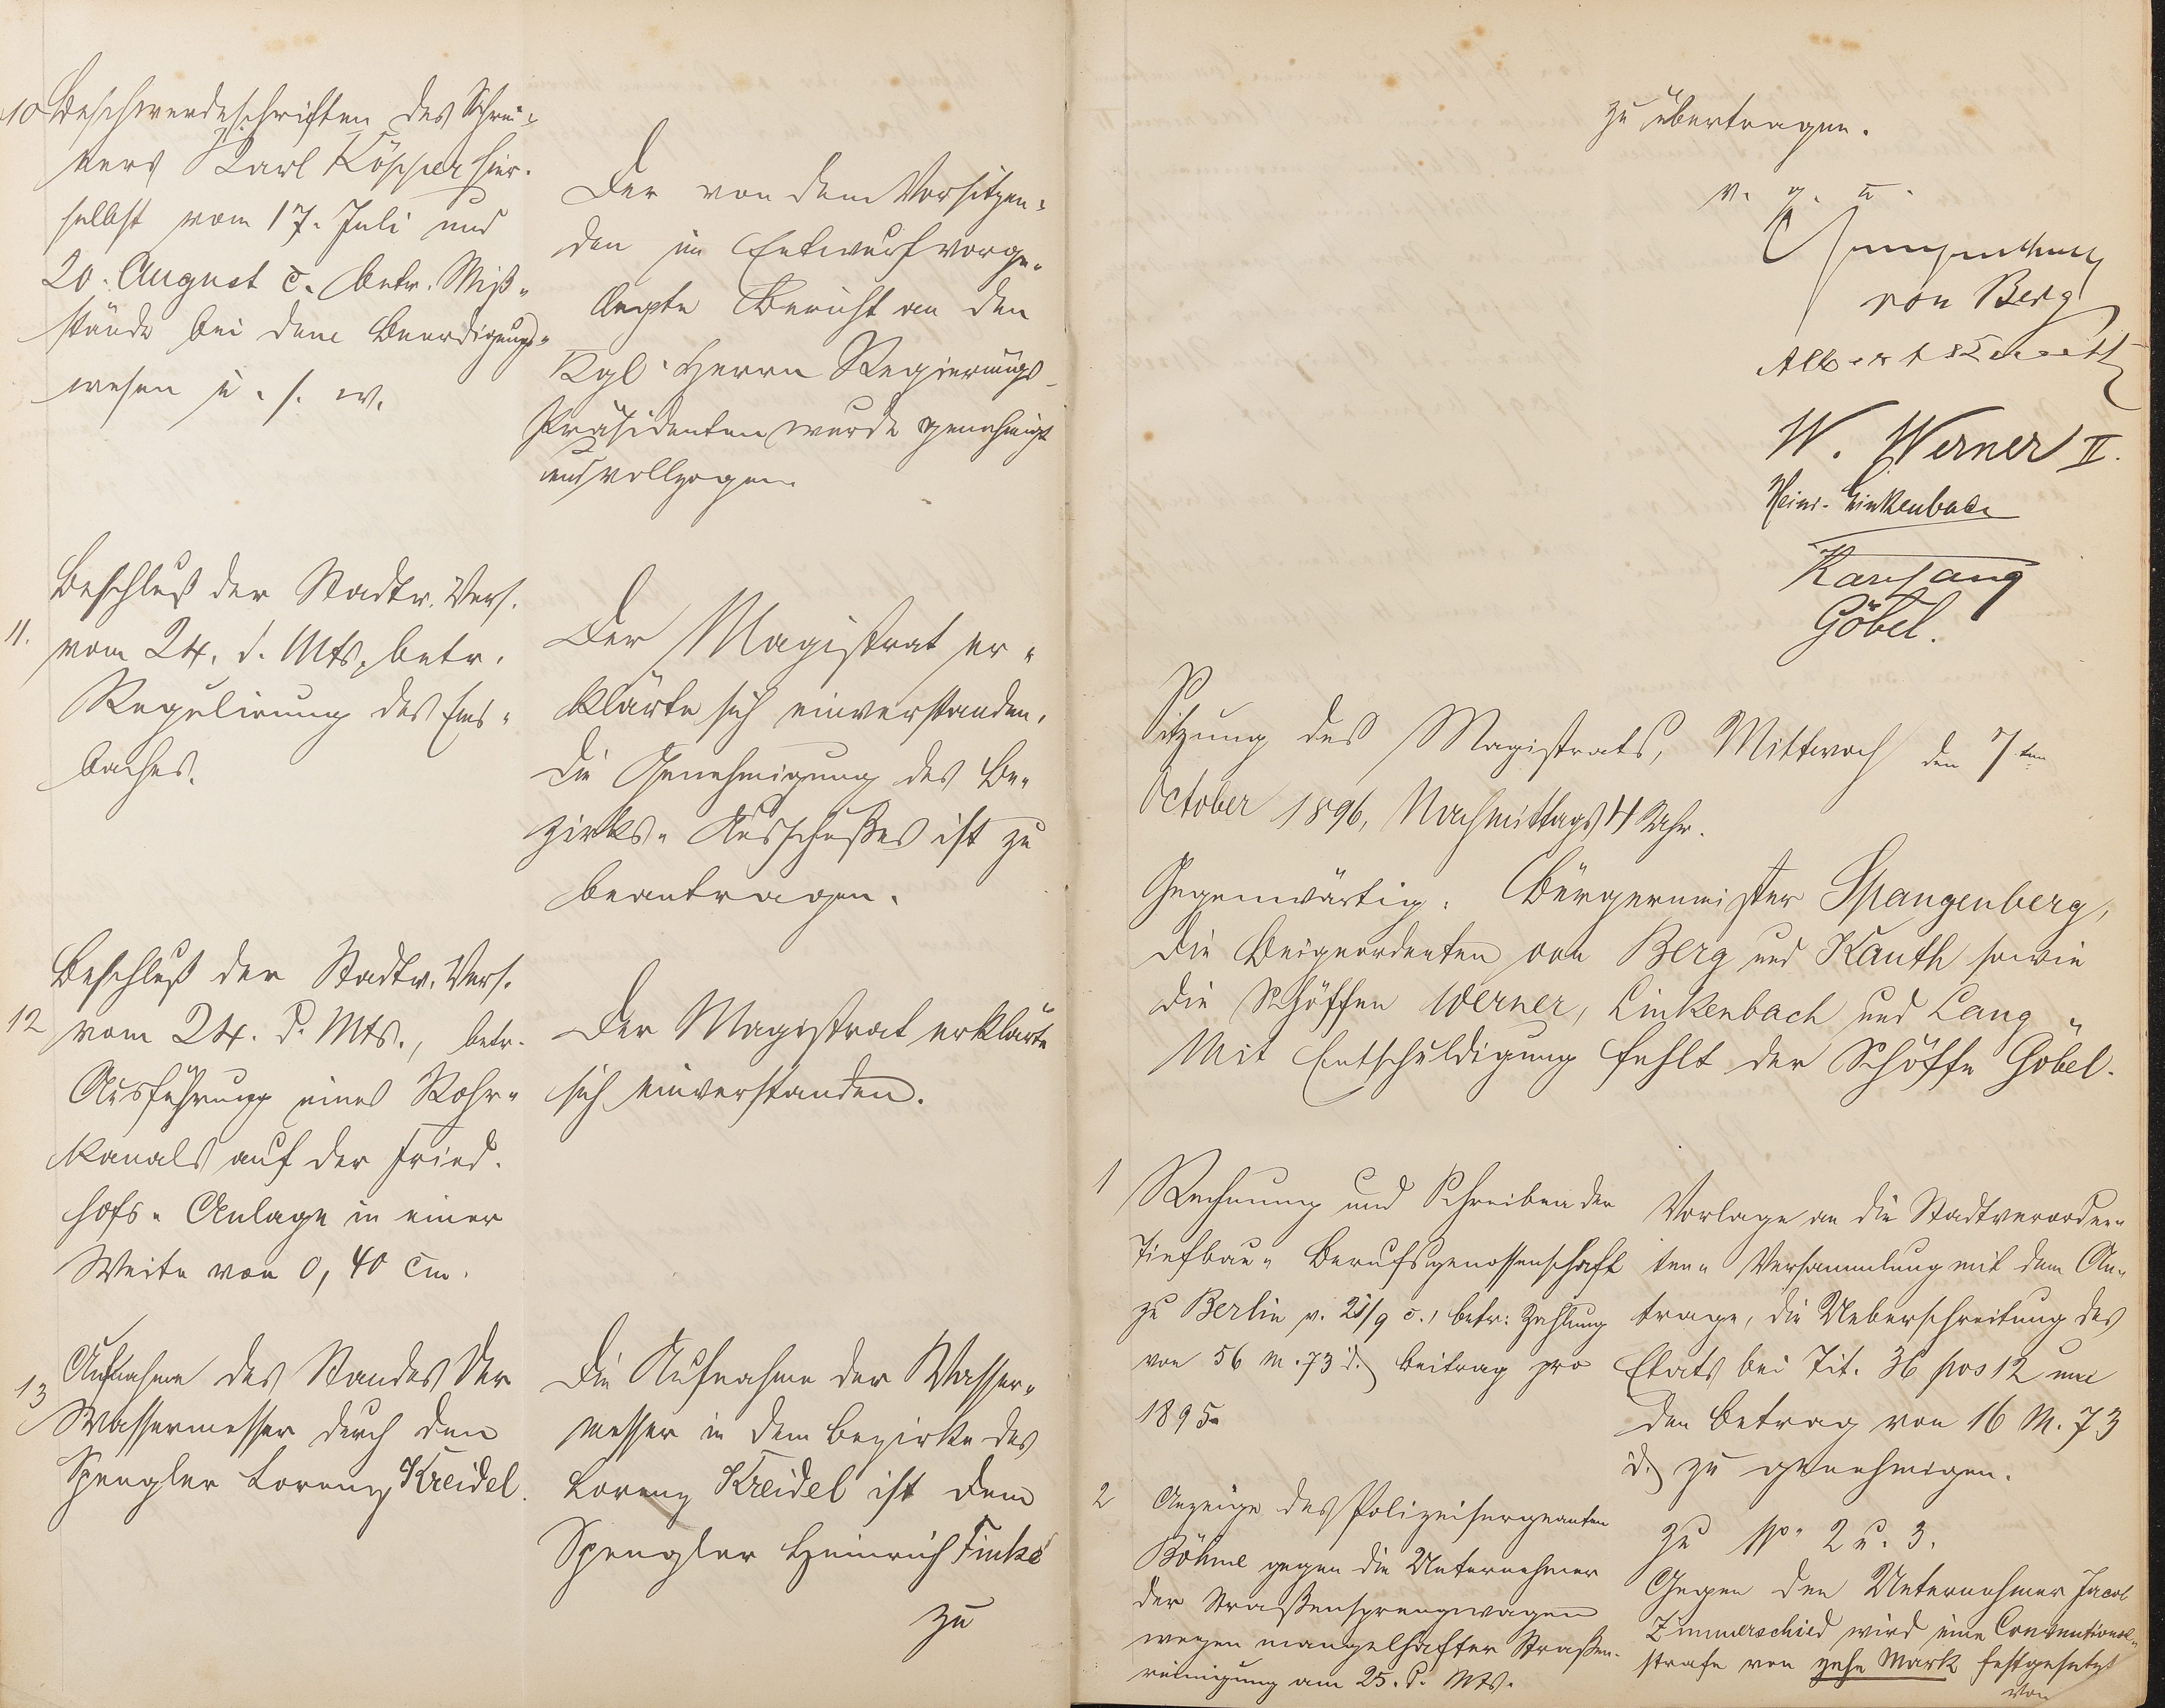 10 Beschwerdeschriften des Schrei-
ners Karl Köpper hier-
selbst vom 17. Juli und
20. August c. betr. Miß-
stände bei dem Beerdigungs-
wesen u. s. w.
Der von dem Vorsitzen-
den im Entwurf vorge-
legte Bericht an den
Kgl. Herrn Regierungs-
Präsidenten wurde genehmigt
und vollzogen.
11. Beschluß der Stadtv. Vers.
vom 24. d. Mts, betr.
Regulirung des Ems-
baches.
Der Magistrat er-
klärte sich einverstanden.
Die Genehmigung des Be-
zirks-Ausschußes ist zu
beantragen.
12 Beschluß der Stadtv. Vers.
vom 24. d. Mts., betr.
Ausführung eines Rohr-
kanals auf der Fried-
hofs-Anlage in einer
Weite von 0,40 cm.
Der Magistrat erklärte
sich einverstanden.
13 Aufnahme des Standes der
Wassermesser durch den
Spengler Lorenz Kreidel.
Die Aufnahme der Wasser-
messer in dem Bezirke des
Lorenz Kreidel ist dem
Spengler Heinrich Finke
zu
zu übertragen.
v. g. u.
von Berg
Albert
W. Werner II.
Heinr. Linkenbach
Karl Lang
Göbel.
Sitzung des Magistrats, Mittwoch den 7ten
October 1896, Nachmittags 4 Uhr.
Gegenwärtig: Bürgermeister Spangenberg,
die Beigeordneten von Berg und Kauth sowie
die Schöffen Werner, Linkenbach und Lang.
Mit Entschuldigung fehlt der Schöffe Göbel.
1 Rechnung und Schreiben der
Tiefbau-Berufsgenossenschaft
zu Berlin v. 21/9 c., betr: Zahlung
von 56 M. 73 d. Beitrag pro
1895.
Vorlage an die Stadtverordne-
ten-Versammlung mit dem An-
trage, die Ueberschreitung des
Etats bei Tit. 36 pos 12 um
den Betrag von 16 M. 73
d. zu genehmigen.
2 Anzeige des Polizeisergeanten
Böhme gegen die Unternehmer
der Straßensprengwagen
wegen mangelhafter Straßen-
reinigung am 25. d. Mts.
Zu No. 2 u. 3.
Gegen den Unternehmer Jacob
Zimmerschied wird eine Conventional-
strafe von zehn Mark festgesetzt
von